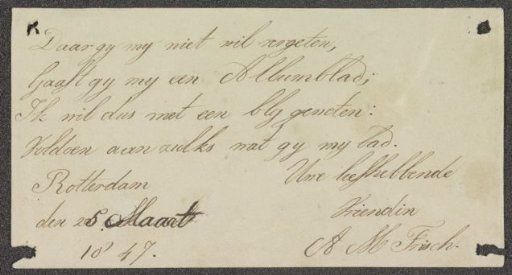 Daar gy my niet wil vergeten,
Gaaft gy my een Allumblad;
Ik wil dus met een bly genoten:
Voldoen aan zulks wat gy my bad.
Uwe liefhebbende
Rotterdam
Vriendin
den 25. Maart
1847.
A M Fisch.